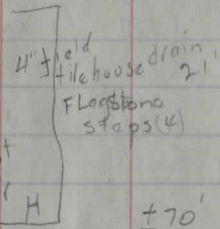 4" field
tile house drain
21'
Flagstone
steps (4)
H
± 70'